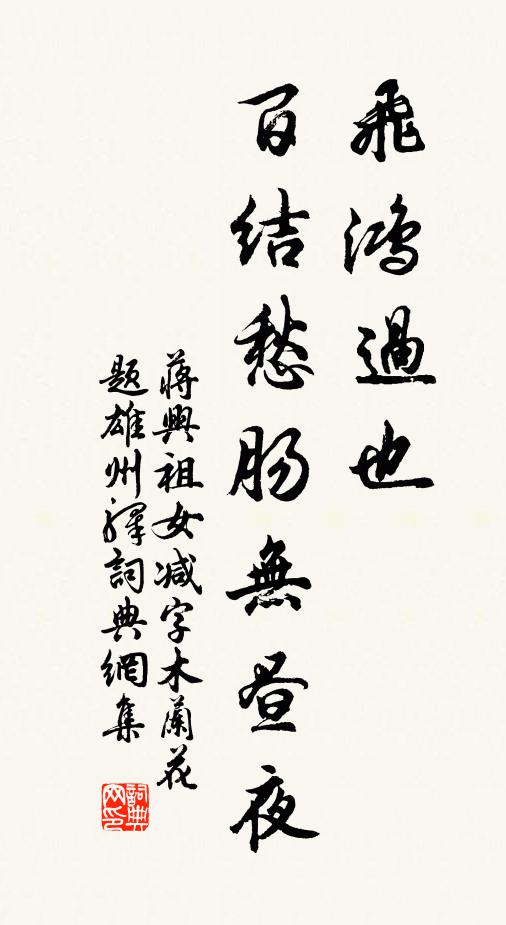 飛鴻過也
百結愁腸無晝夜
蔣興祖女減字木蘭花
題雄州驛詞典網集
詞典網印